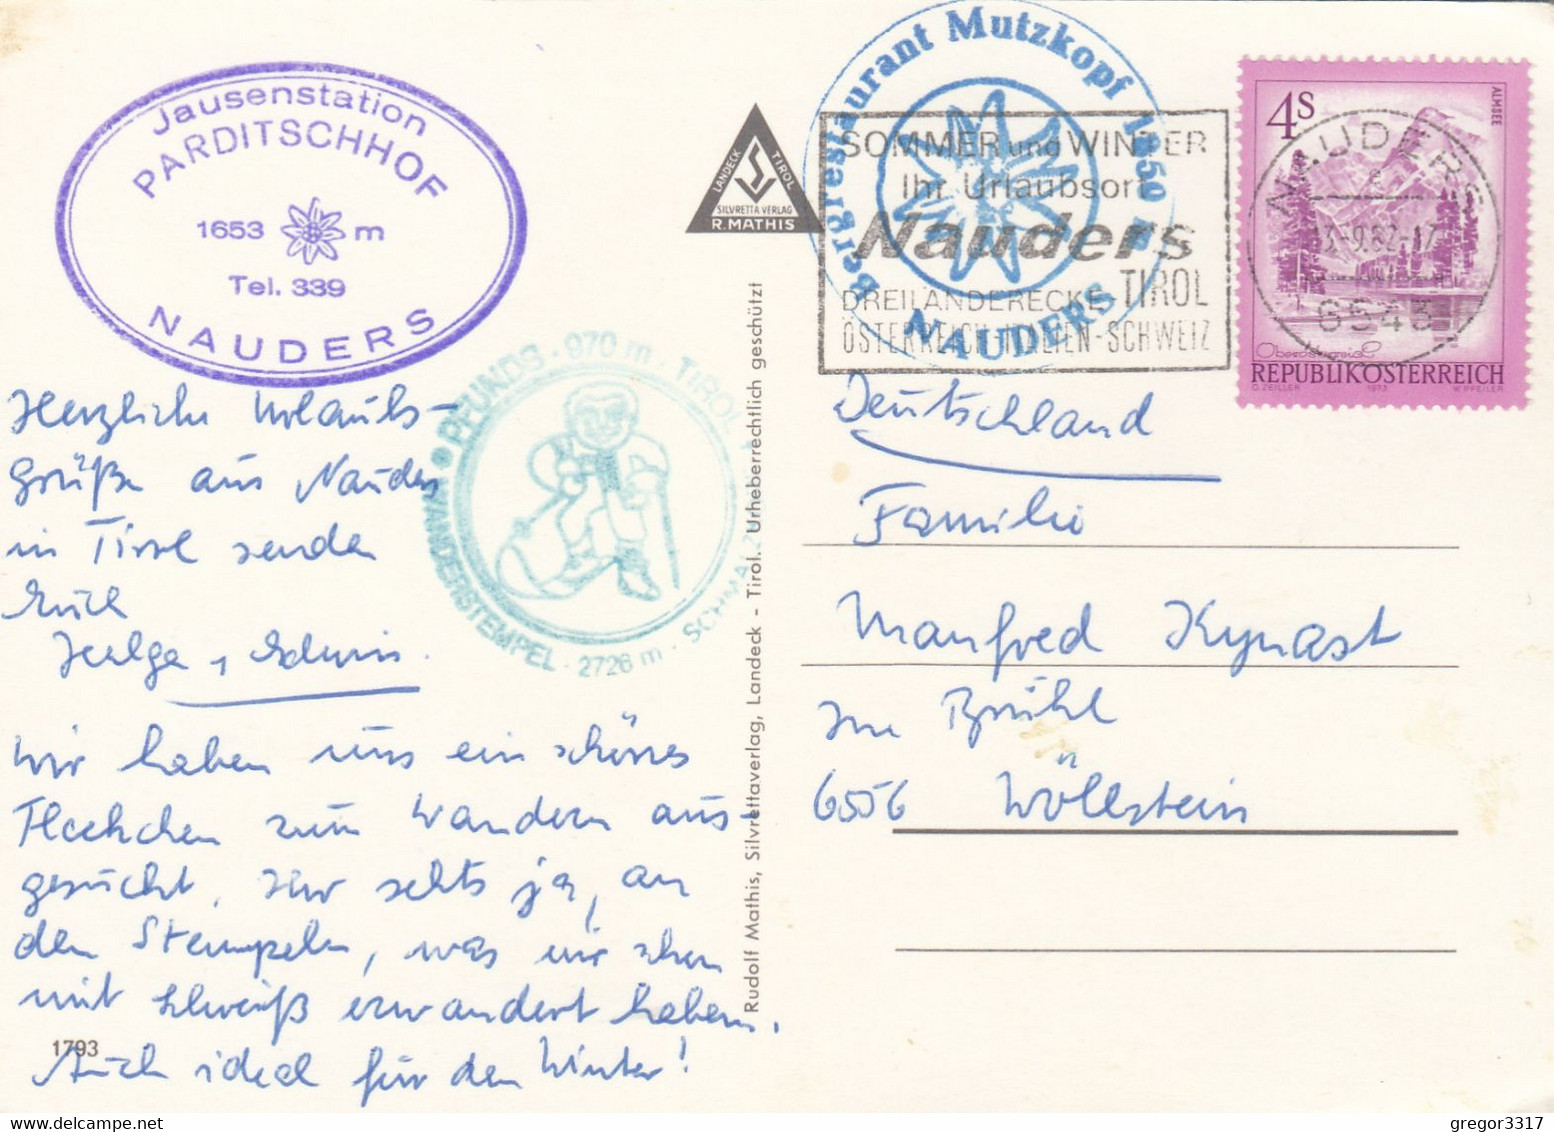 Jausenstation
PARDITSCHHOF
1653 m
Tel. 339
NAUDERS
PFUNDS · 970 m · TIROL
WANDERSTEMPEL · 2726 m · SCHMA
LANDECK TIROL
SILVRETTA VERLAG
R. MATHIS
Bergrestaurant Mutzkopf
NAUDERS
SOMMER und WINTER
Ihr Urlaubsort
Nauders
DREILÄNDERECKE TIROL
ÖSTERREICH-ITALIEN-SCHWEIZ
4S
ALMSEE
NAUDERS
6543
Oberösterreich
REPUBLIK ÖSTERREICH
O. ZEILLER 1973 W. PFEILER
Herzliche Urlaubs-
grüße aus Nauders
in Tirol senden
Euch
Helga, Edwin.
Wir haben uns ein schönes
Fleckchen zum Wandern aus-
gesucht. Ihr sehts ja, an
den Stempeln, was wir schon
mit Schweiß erwandert haben.
Auch ideal für den Winter!
1793
Rudolf Mathis, Silvrettaverlag, Landeck - Tirol. Urheberrechtlich geschützt
Deutschland
Familie
Manfred Kynast
Im Brühl
6556 Wöllstein
gregor3317